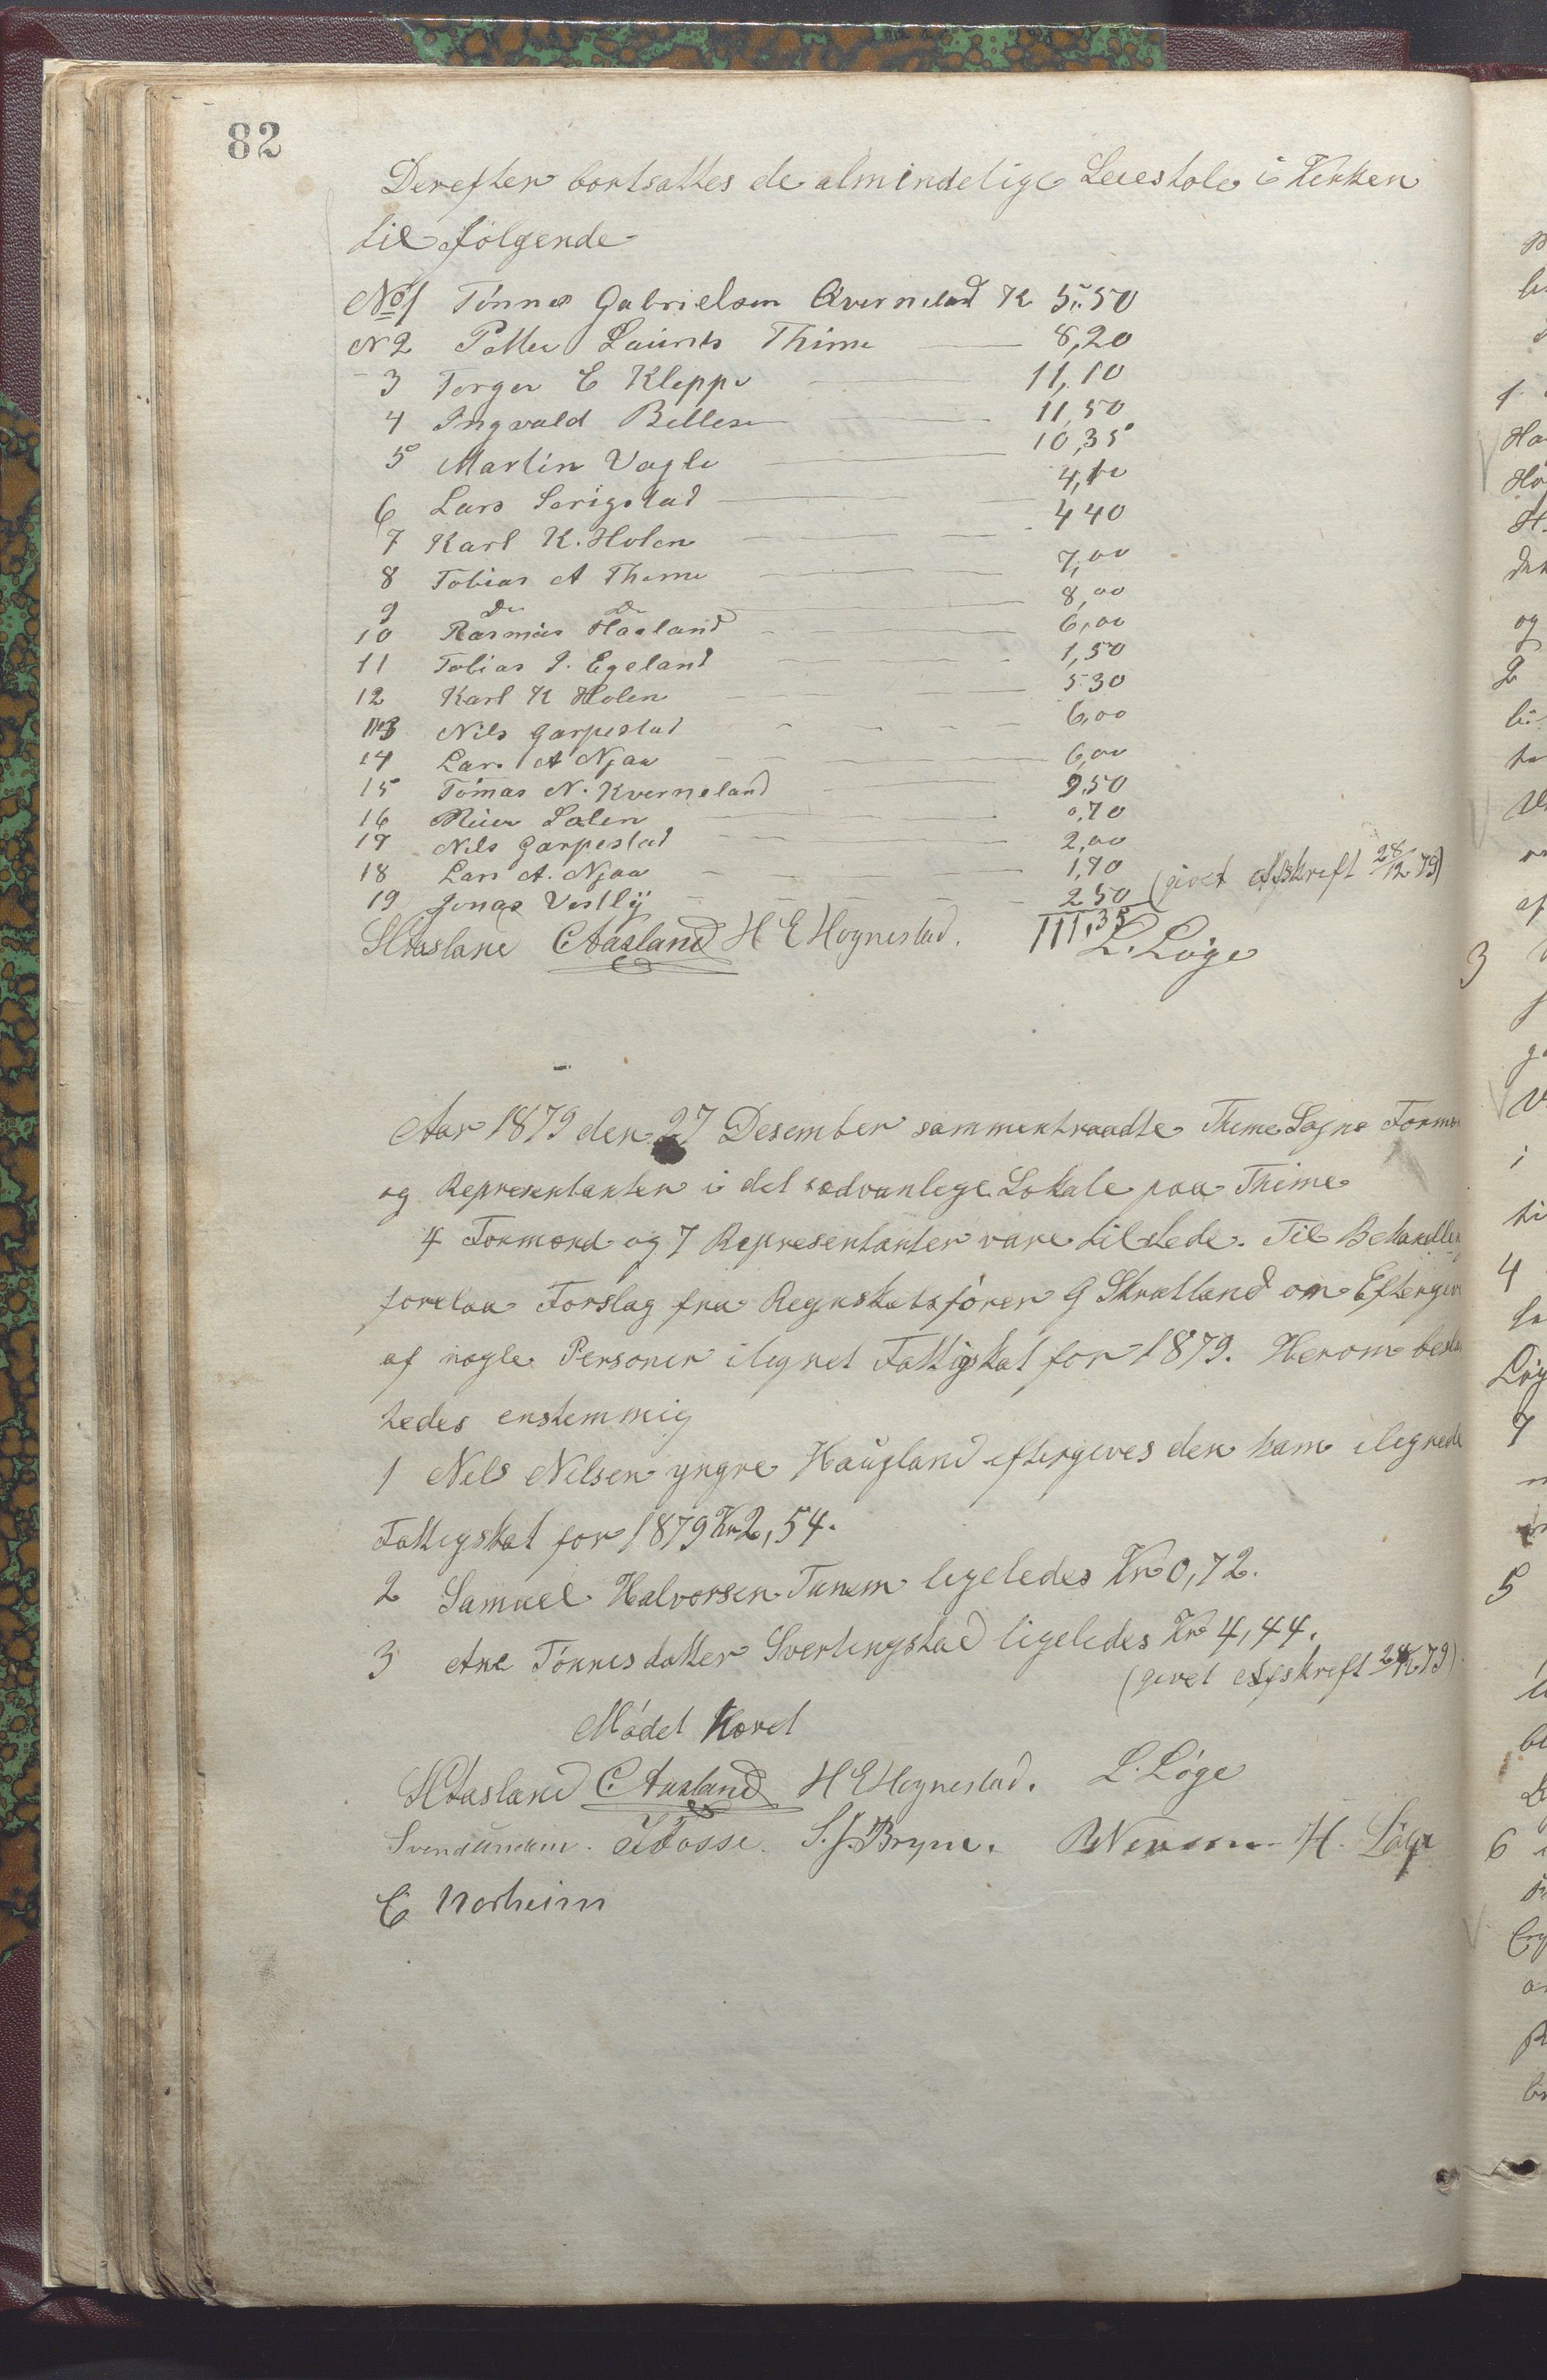 82
Derefter bortsattes de almindelige Leiestole i Kirken
til følgende
No 1 Tönnes Gabrielsen Qverneland K 5,50
N 2 Petter Lauints Thime 8,20
3 Torger E Kleppe 11,10
4 Ingvald Bellesen 11,50
5 Martin Vagle 10,35
6 Lars Serigstad 4,10
7 Karl K. Holen 4 40
8 Tobias A Thime 7,00
9 Do Do 8,00
10 Rasmus Haaland 6,00
11 Tobias I. Egeland 1,50
12 Karl K Holen 5 30
13 Nils Garpestad 6,00
14 Lars A Njaa 6,00
15 Tomas N. Kverneland 9,50
16 Reier Salen 0,70
17 Nils Garpestad 2,00
18 Lars A. Njaa 1,70
19 Jonas Vestlÿ 2 50 (givet afskreft 28/12 79)
111,35
Aasland C Aasland H E Hognestad. L. Löge
Aar 1879 den 27 Desember sammentraadte Thime Sogns Formæn
og Representanter i det sædvanlege Lokale paa Thime
4 Formænd og 7 Representanter vare tilstede. Til Behandlen
forelaa Forslag fra Regnskabsfører G Skrætland om Eftergive
af nogle Personer ilignet Fattigskat for 1879. Herom beslu
tedes enstemmig
1 Nels Nelsen yngre Haugland eftergives den ham ilignede
Fattigskat for 1879 Kr 2,54.
2 Samuel Halvorsen Tunem legeledes Kr 0,72.
3 Ane Tönnesdatter Sverlingstad ligeledes Kr 4,44.
(givet afskreft 28/12 79)
Mödet hævet
Aasland C Aasland H E Hognestad. L. Löge
Svend Unem. Fosse. S. J. Bryne. H. Löge
E Norheim